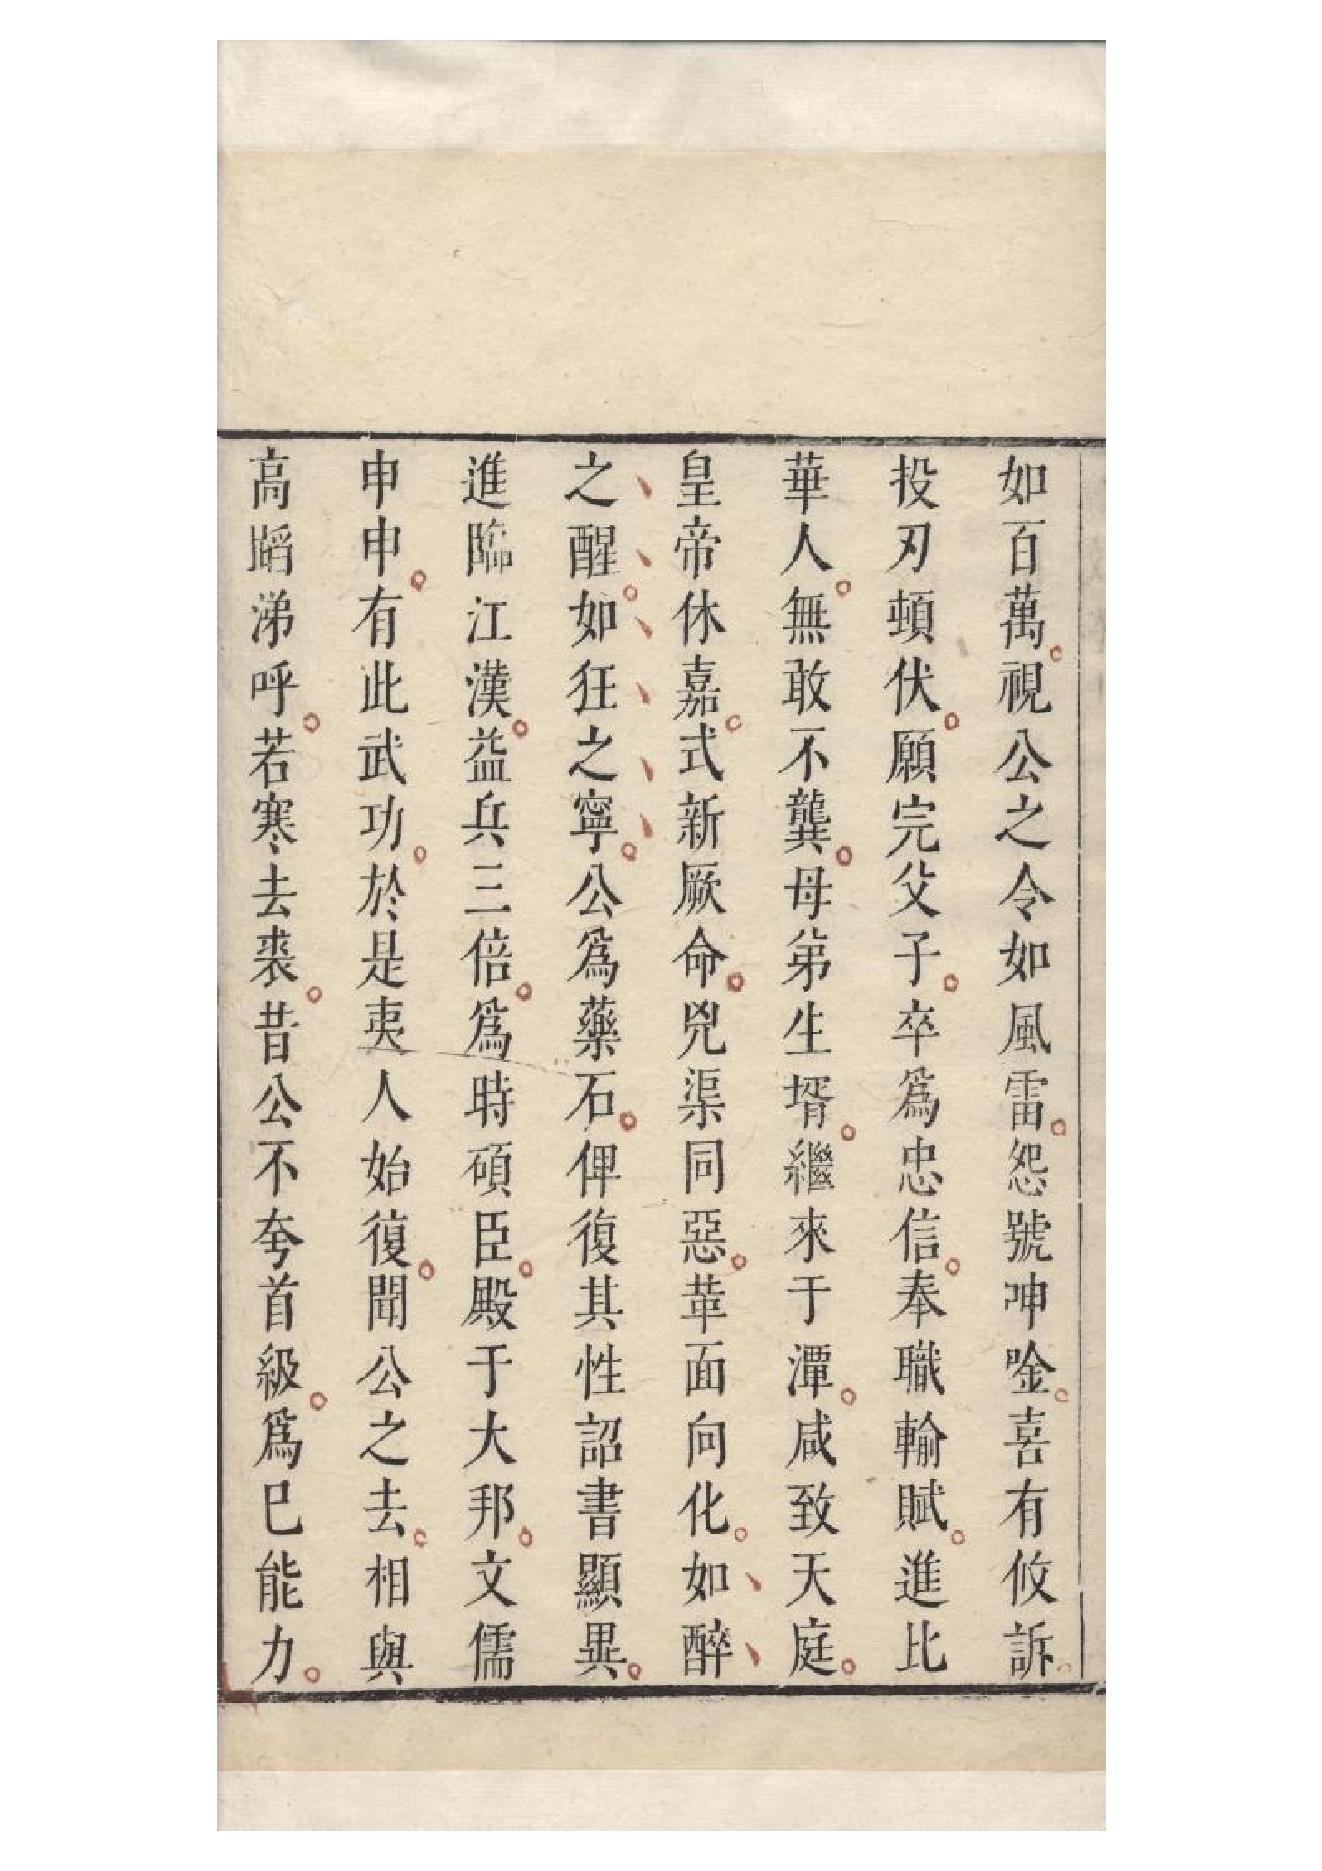 如百萬視公之令如風雷怨號呻唫喜有攸訴
投刃頓伏願完父子卒爲忠信奉職輸賦進比
華人無敢不龔母弟生壻繼來于潭咸致天庭
皇帝休嘉式新厥命兇渠同惡革面向化如醉
之醒如狂之寧公爲藥石俾復其性詔書顯異
進臨江漢益兵三倍爲時碩臣殿于大邦文儒
申申有此武功於是夷人始復聞公之去相與
高蹈涕呼若寒去裘昔公不夸首級爲已能力